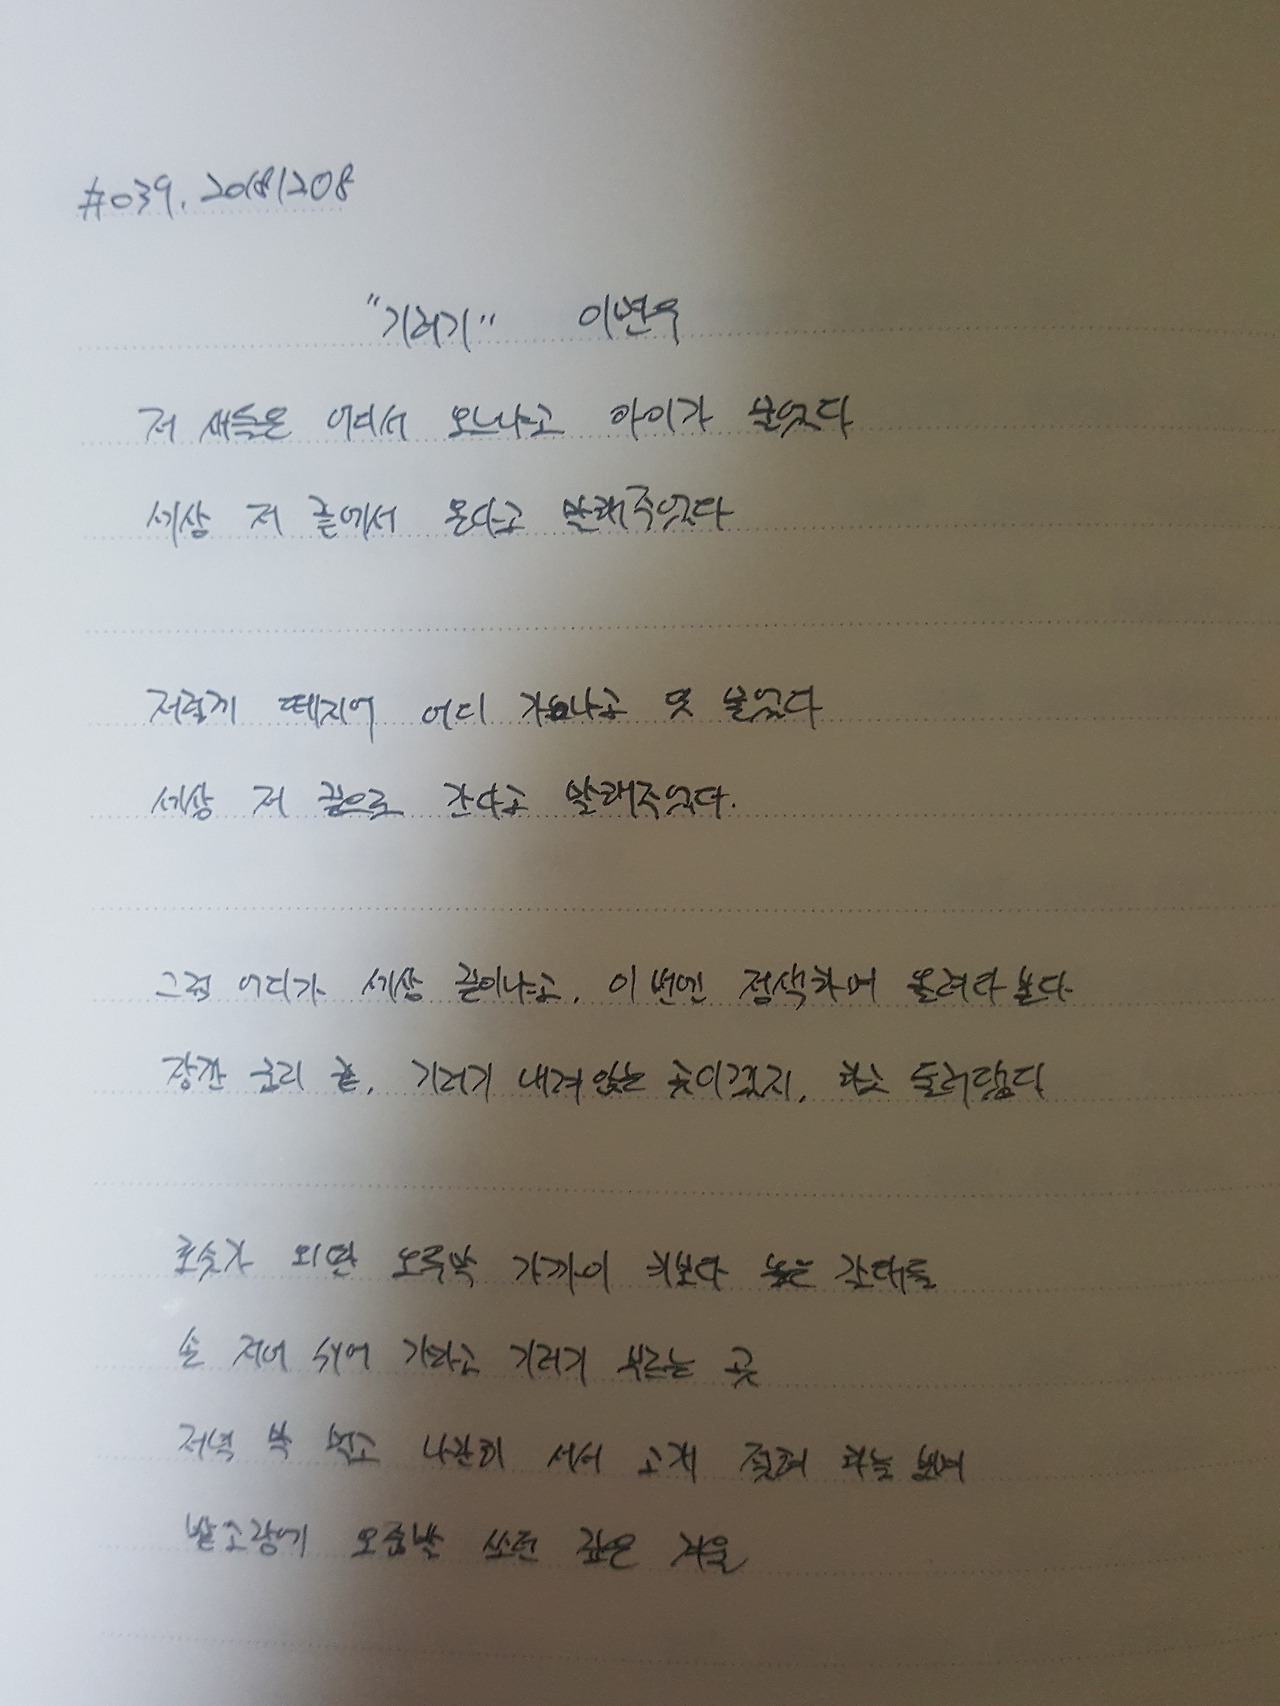 #039. 20181208
"기러기" 이면우
저 새들은 어디서 오느냐고 아이가 물었다
세상 저 끝에서 온다고 말해주었다
저렇게 떼지어 어디 가느냐고 또 물었다
세상 저 끝으로 간다고 말해주었다.
그럼 어디가 세상 끝이냐고, 이번엔 정색하며 올려다본다
잠깐 궁리 끝, 기러기 내려앉는 곳이겠지, 하고 둘러댔다
호숫가 외딴 오두막 가까이 키보다 높은 갈대들
손 저어 쉬어 가라고 기러기 부르는 곳
저녁 막 먹고 나란히 서서 고개 젖혀 하늘 보며
밭고랑에 오줌발 쏘던 깊은 겨울